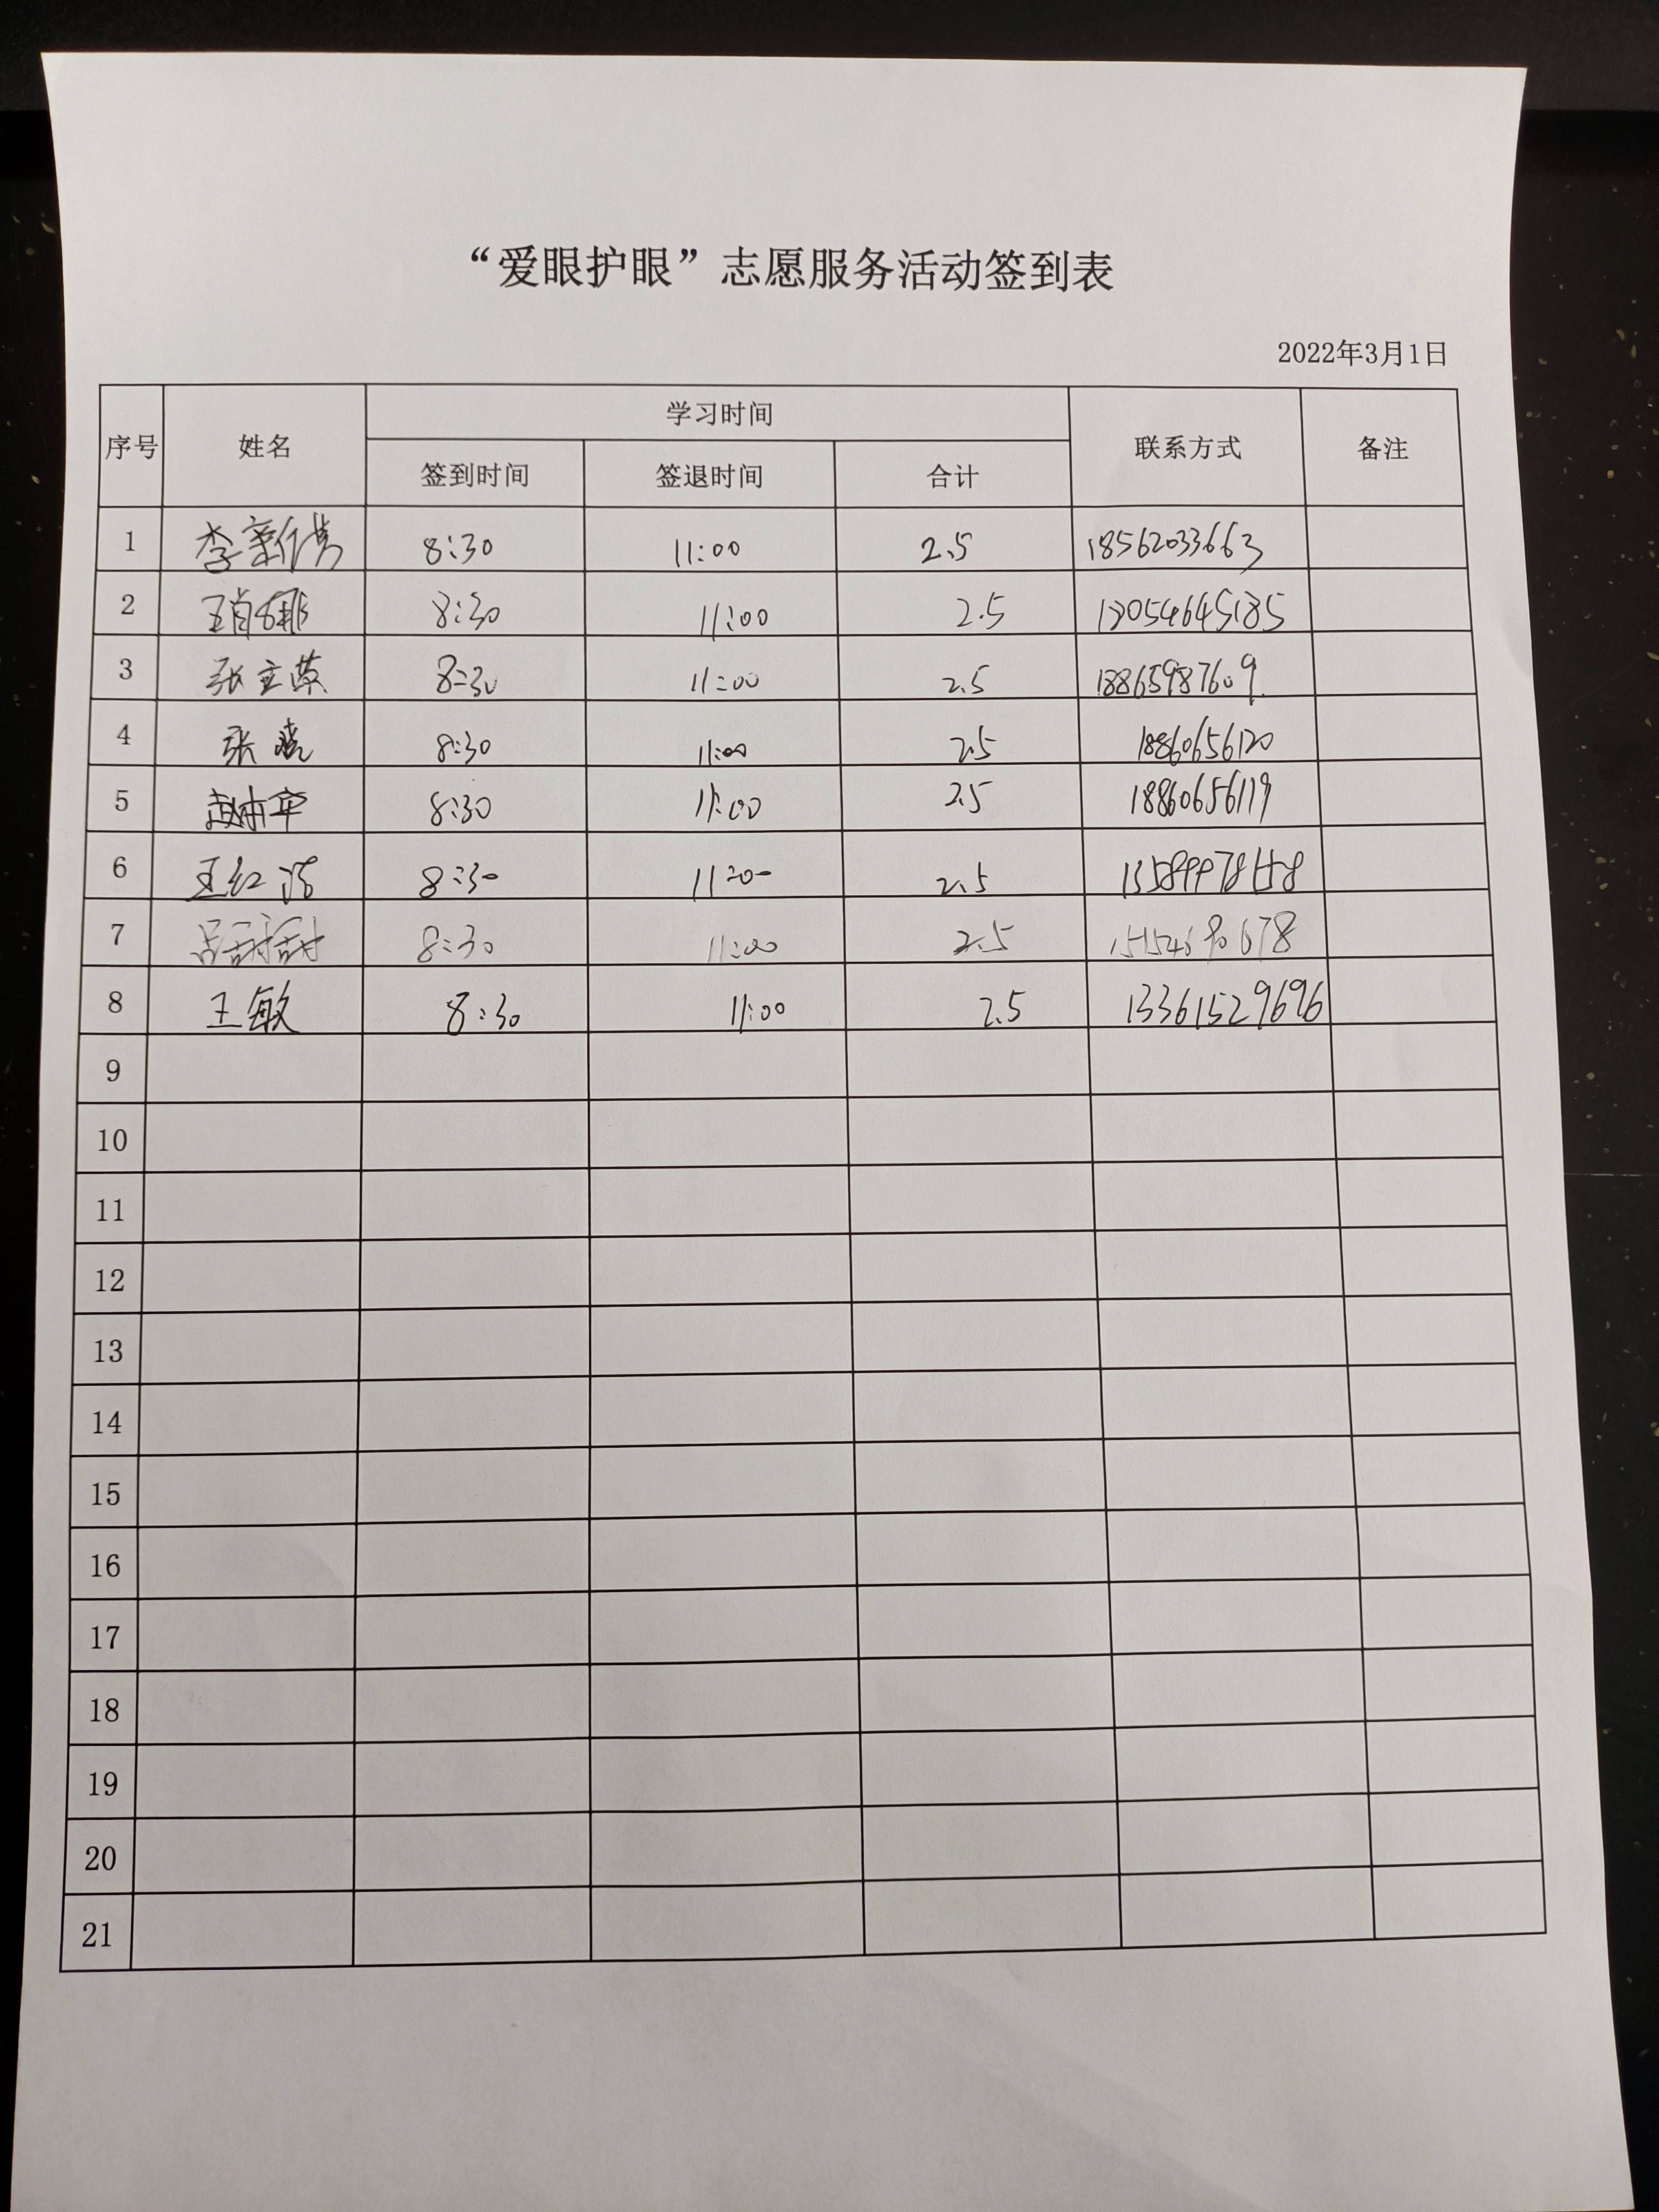 “爱眼护眼”志愿服务活动签到表
2022年3月1日
序号 姓名 学习时间 联系方式 备注
签到时间 签退时间 合计
1 8:30 11:00 2.5 18562033663
2 8:30 11:00 2.5 13054645185
3 8:30 11:00 2.5 18865987609
4 张晓 8:30 11:00 2.5 18860656120
5 8:30 11:00 2.5 18860656119
6 王红 8:30 11:00 2.5
7 吕甜甜 8:30 11:00 2.5
8 王敏 8:30 11:00 2.5 13361529696
9
10
11
12
13
14
15
16
17
18
19
20
21